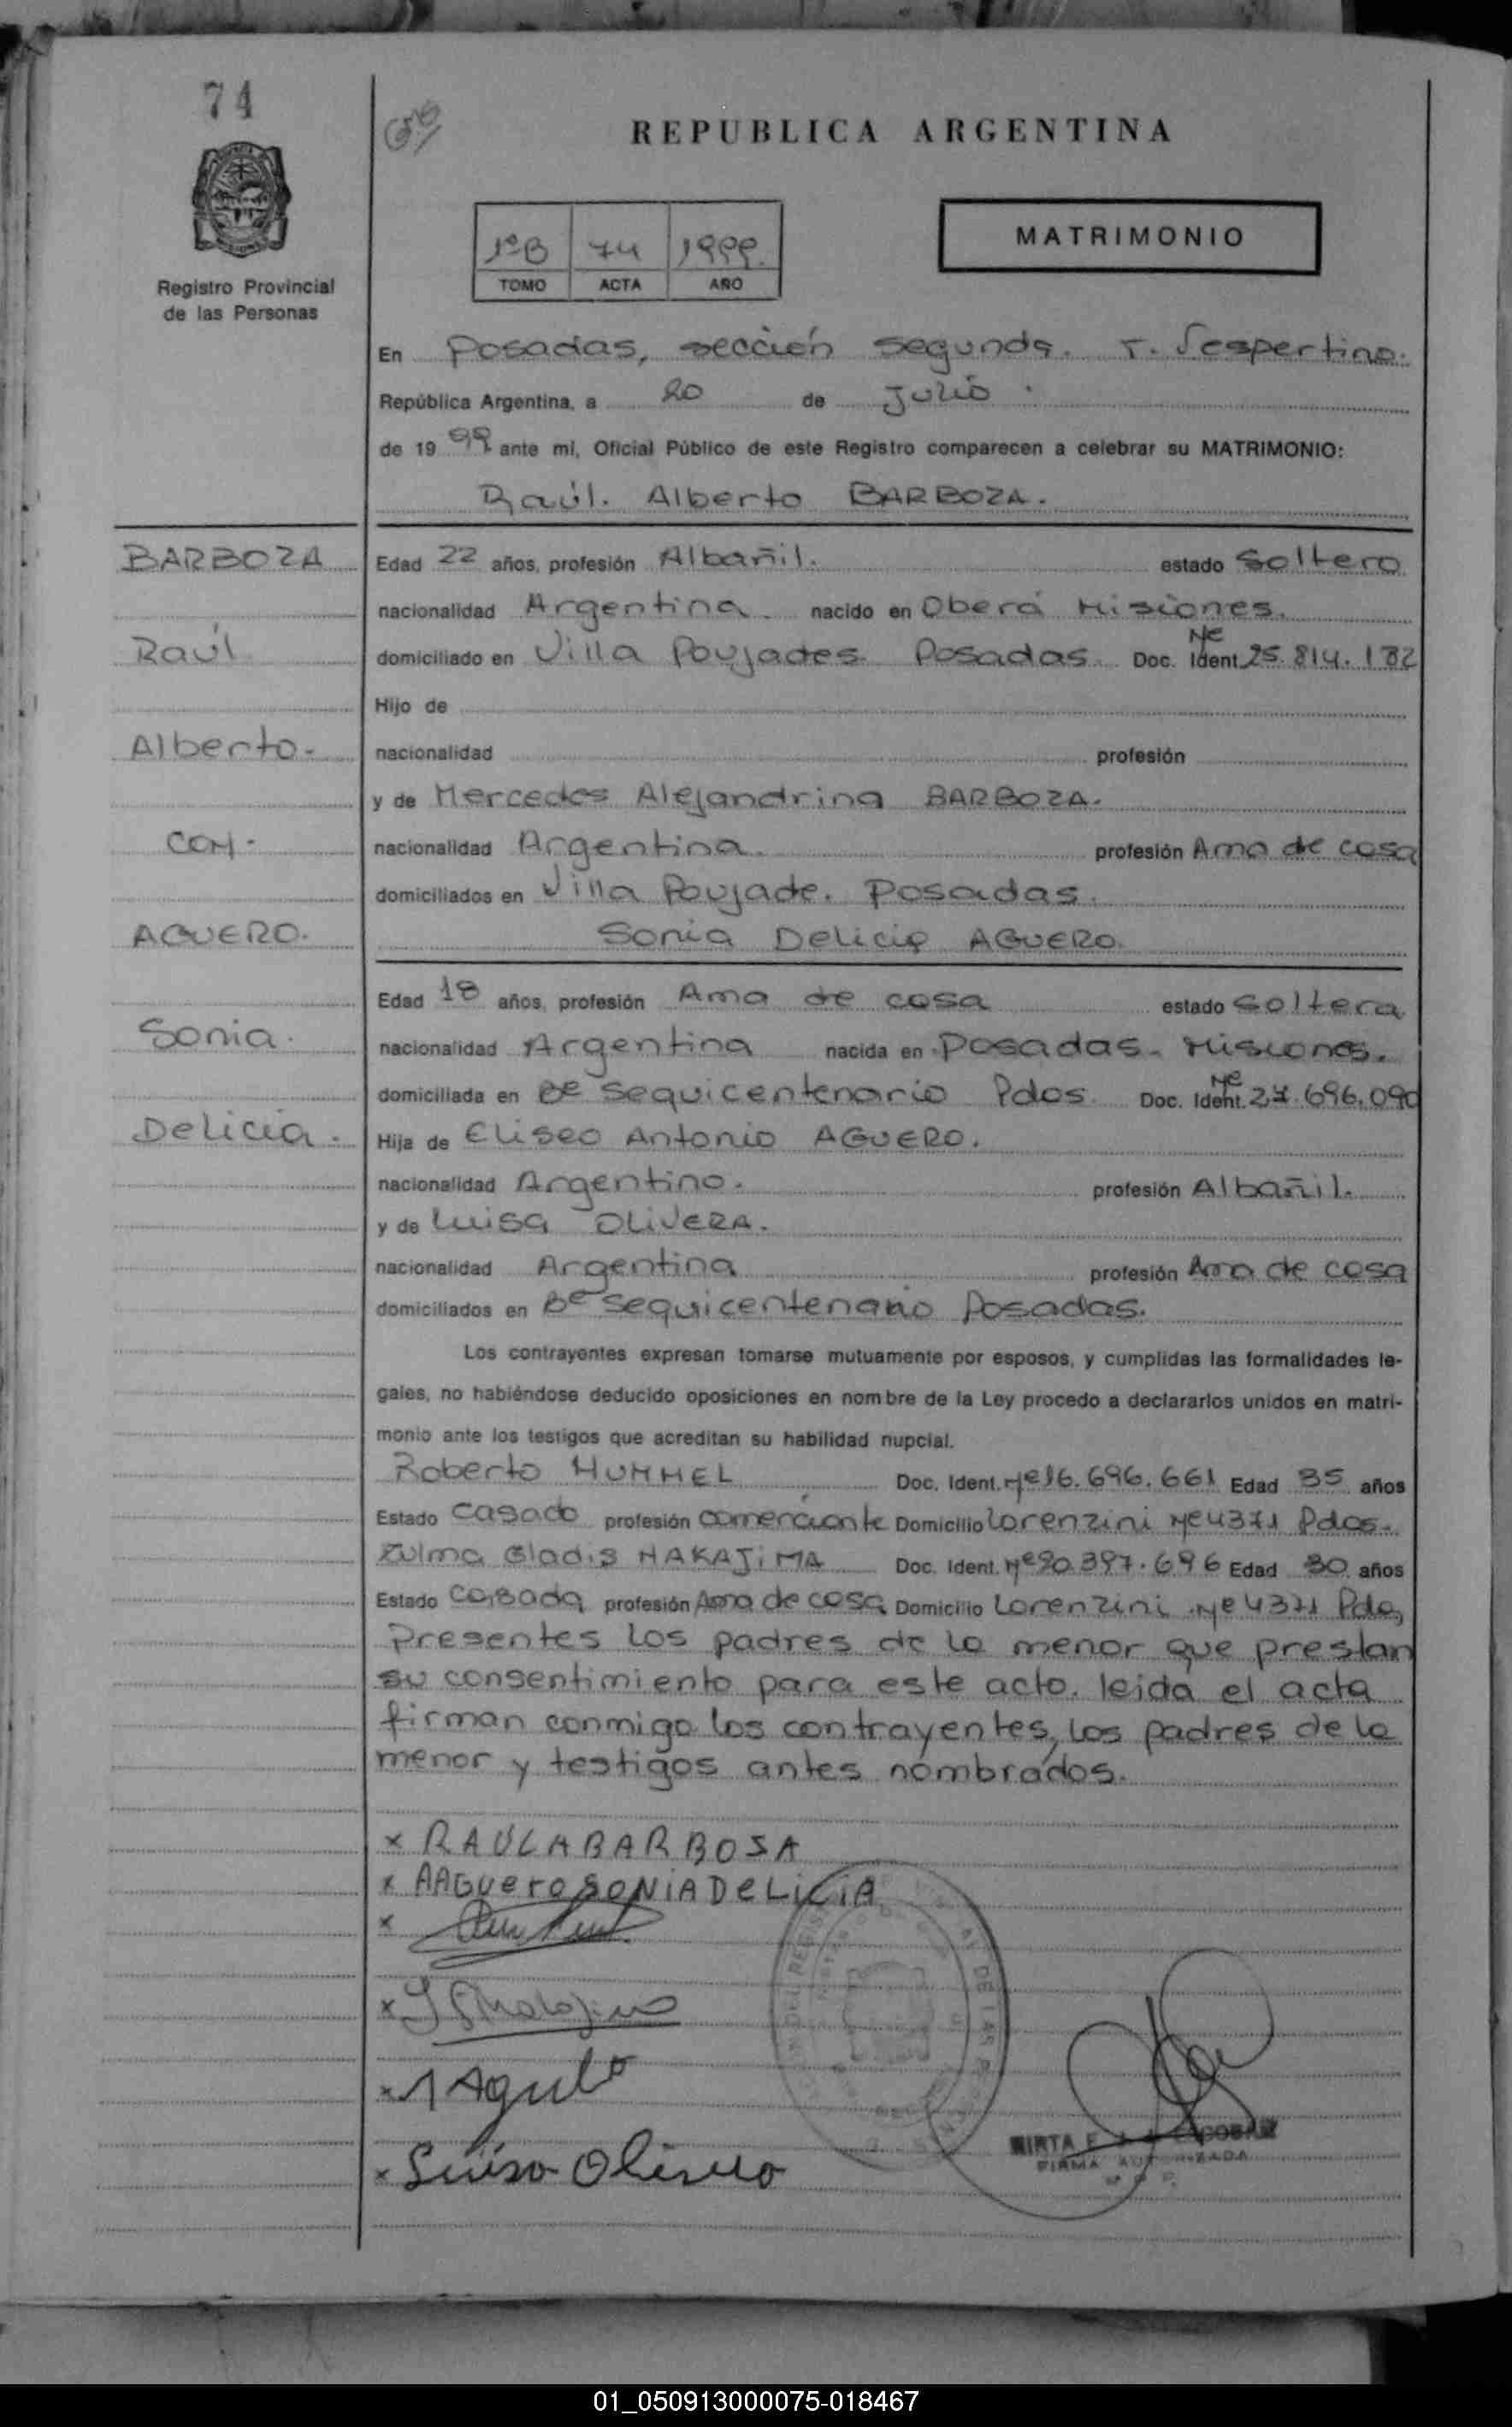 74
REPUBLICA ARGENTINA
MATRIMONIO
1ºB 74 1999.
TOMO ACTA AÑO
Registro Provincial
de las Personas
En Posadas, sección segunda. T. Vespertino.
República Argentina, a 20 de Julio.
de 19 99 ante mí, Oficial Público de este Registro comparecen a celebrar su MATRIMONIO:
Raúl. Alberto BARBOZA.
BARBOZA
Raúl
Alberto.-
CON.
AGUERO.
Sonia.
Delicia.
Edad 22 años, profesión Albañil. estado Soltero
nacionalidad Argentina. nacido en Oberá Misiones.
domiciliado en Villa Poujades Posadas Doc. Ident. Nº 25.814.182
Hijo de
nacionalidad profesión
y de Mercedes Alejandrina BARBOZA.
nacionalidad Argentina. profesión Ama de casa
domiciliados en Villa Poujade. Posadas.
Sonia Delicia AGUERO.
Edad 18 años, profesión Ama de casa estado Soltera
nacionalidad Argentina nacida en Posadas. Misiones.
domiciliada en Bº Sequicentenario Pdas. Doc. Ident. Nº 27.696.090
Hija de Eliseo Antonio AGUERO.
nacionalidad Argentino. profesión Albañil.
y de Luisa OLIVERA.
nacionalidad Argentina profesión Ama de casa
domiciliados en Bº Sequicentenario Posadas.
Los contrayentes expresan tomarse mutuamente por esposos, y cumplidas las formalidades le-
gales, no habiéndose deducido oposiciones en nombre de la Ley procedo a declararlos unidos en matri-
monio ante los testigos que acreditan su habilidad nupcial.
Roberto HUMMEL Doc. Ident. Nº 16.696.661 Edad 35 años
Estado Casado profesión comerciante Domicilio Lorenzini Nº 4371 Pdas.
Zulma Gladis NAKAJIMA Doc. Ident. Nº 20.397.696 Edad 30 años
Estado Casada profesión Ama de casa Domicilio Lorenzini Nº 4371 Pda,
Presentes los padres de la menor que prestan
su consentimiento para este acto. leida el acta
firman conmigo los contrayentes, los padres de la
menor y testigos antes nombrados.
x RAÚL A BARBOSA
x AAGUero SONIA DeLiCiA
x
x
x
x Luisa Olivera
MIRTA
FIRMA AUTORIZADA
01_050913000075-018467